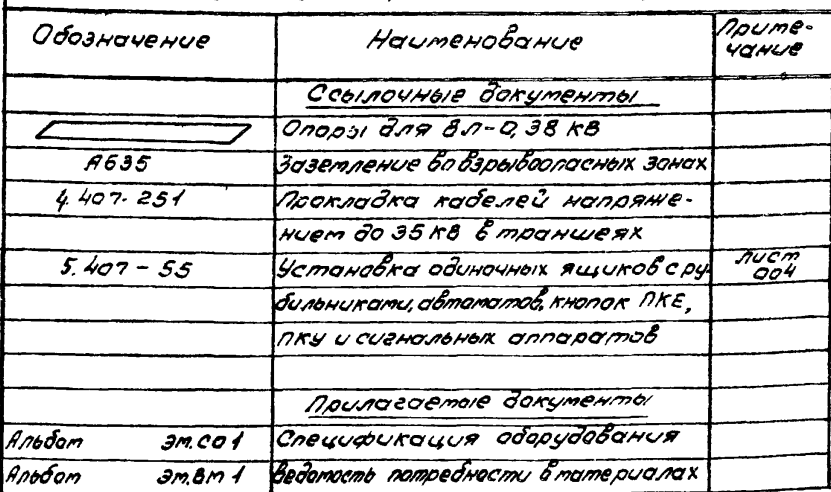 Обозначение Наименование Приме-
чание
Ссылочные документы
Опоры для ВЛ-0,38 кВ
А635 Заземление во взрывоопасных зонах
4.407-251 Прокладка кабелей напряже-
нием до 35 кВ в траншеях
5.407-55 Установка одиночных ящиков с ру- лист
бильниками, автоматов, кнопок ПКЕ, 004
ПКУ и сигнальных аппаратов
Прилагаемые документы
Альбом ЭМ.СО1 Спецификация оборудования
Альбом ЭМ.ВМ1 Ведомость потребности в материалах